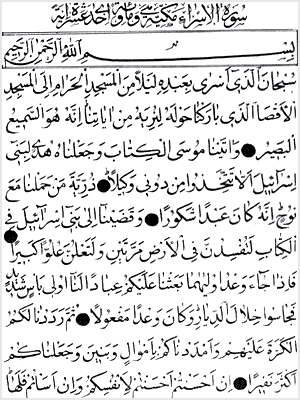 سورة الاسراء مكية وهى مائة واحد عشر اية
بسم الله الرحمن الرحيم
سبحان الذى اسرى بعبده ليلا من المسجد الحرام الى المسجد
الاقصا الذى باركنا حوله لنريه من اياتنا انه هو السميع
البصير واتينا موسى الكتاب وجعلناه هدى لبنى
اسرائيل الا تتخذوا من دونى وكيلا ذرية من حملنا مع
نوح انه كان عبدا شكورا وقضينا الى بنى اسرائيل فى
الكتاب لتفسدن فى الارض مرتين ولتعلن علوا كبيرا
فاذا جاء وعد اوليهما بعثنا عليكم عبادا لنا اولى باس شديد
فجاسوا خلال الديار وكان وعدا مفعولا ثم رددنا لكم
الكرة عليهم وامددناكم باموال وبنين وجعلناكم
اكثر نفيرا ان احسنتم احسنتم لانفسكم وان اساتم فلها